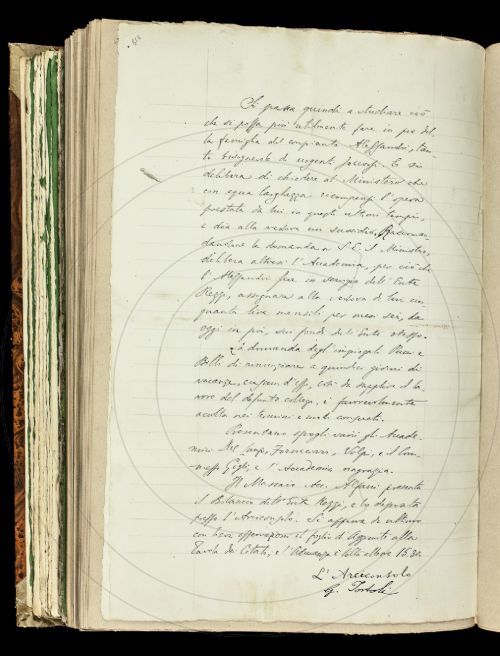 Si passa quindi a studiare ciò
che si possa più utilmente fare in pro del-
la famiglia del compianto Alessandri, tan-
to bisognosa di urgenti soccorsi. E si
delibera di chiedere al Ministero che
con equa larghezza ricompensi l'opera
prestata da lui in quegli ultimi tempi,
e dia alla vedova un sussidio. Raccoman-
dandone la domanda a S. E. il Ministro,
delibera altresì l'Accademia, per ciò che
l'Alessandri fece in servigio dell'Ente
Rezzi, assegnare alla vedova di lui cin-
quanta lire mensili per mesi sei, da
oggi in poi, sui fondi dell'Ente stesso.
La domanda degli impiegati Pucci e
Belli di rinunziare a quindici giorni di
vacanza, ciascun d'essi, così da supplire il la-
voro del defunto collega, è favorevolmente
accolta nei termini
Presentano spogli varii gli Accade-
mici Del Lungo, Fornaciari, Volpi, e il Com-
messo Gigli; e l'Accademia ringrazia.
Il Massaio Acc. Alfani presenta
il Bilancio dell'Ente Rezzi, e lo deposita
presso l'Arciconsolo. Si approva da ultimo
con lievi osservazioni il foglio di Aggiunte alla
Tavola dei Citati; e l'Adunanza è tolta alle ore 15.30.
L'Arciconsolo
G. Tortoli